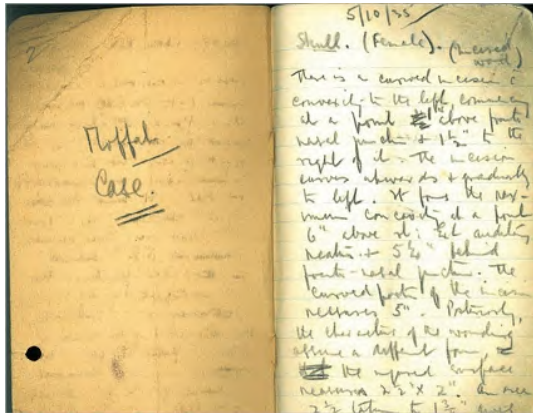 2
Moffat
Case.
5/10/35
Skull. (Female). (Incised
wound)
There is a curved incision c
convexity to the left commencing
at a point 1" above fronto
nasal junction & 1½" to the
right of it. The incision
curves upwards & gradually
to left. It forms the max-
imum convexity at a point
6" above it: Ext auditory
meatus & 5¼" behind
fronto-nasal junction. The
curved part of the incision
measures 5". Posteriorly,
the character of the wounding
assume a different form,
the injured surface
measures 2½" x 2".